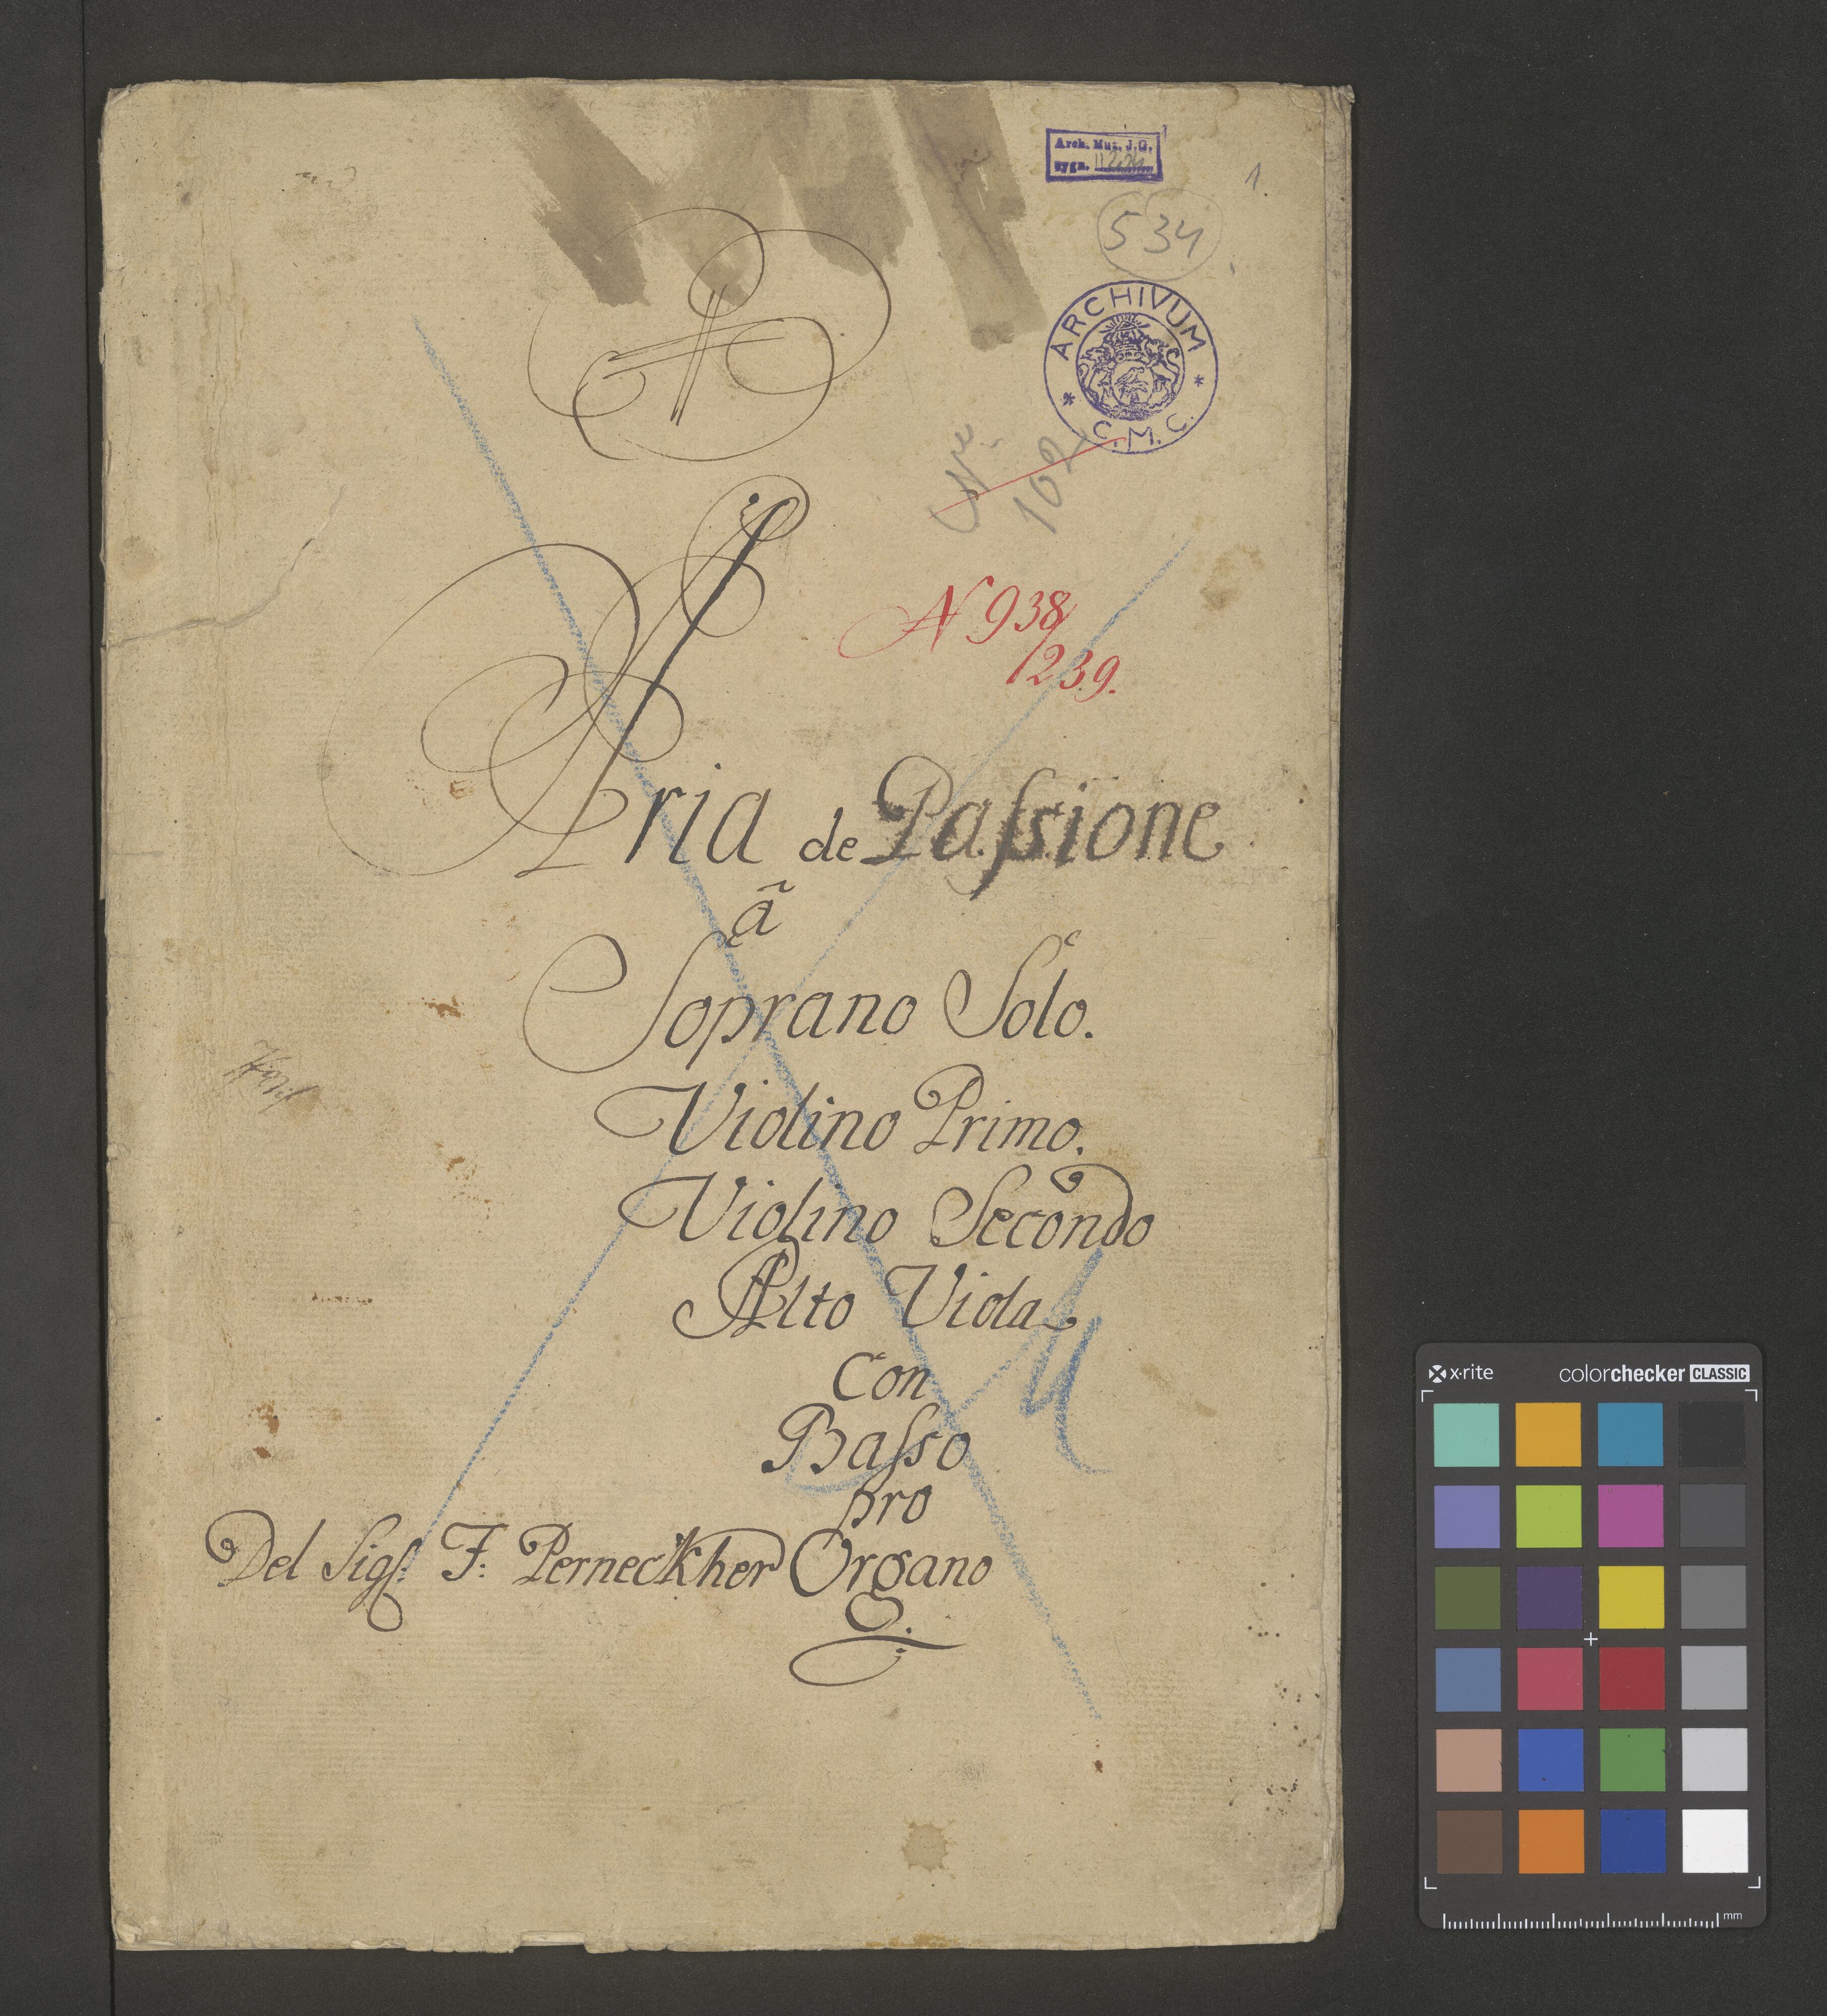 Arch. Muz. J.G.
sygn.
1.
534
ARCHIVUM
C.M.C.
Nro
102
N 938
1239.
Aria de Paſsione
ã
Soprano Solo.
Violino Primo.
Violino Secondo
Alto Viola
Con
Baſso
pro
Del Sigr: F: Perneckher Organo
x-rite
colorchecker CLASSIC
mm